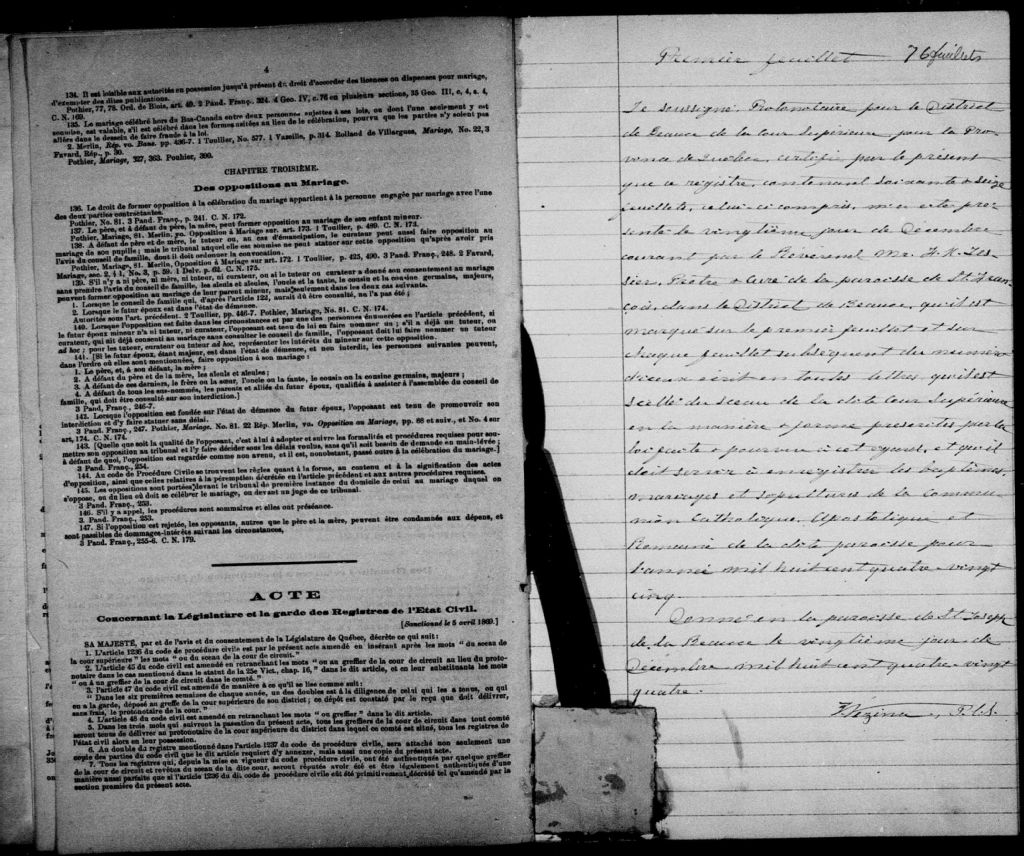 4
134. Il est loisible aux autorités en possession jusqu'à présent du droit d'accorder des licences ou dispenses pour mariage,
d'exempter des dites publications.
Pothier, 77, 78. Ord. de Blois, art. 40. 2 Pand. Franç. 324. 4 Geo. IV, c. 76 en plusieurs sections, 35 Geo. III, c. 4, s. 4,
C. N. 169.
135. Le mariage célébré hors du Bas-Canada entre deux personnes sujettes à ses lois, ou dont l'une seulement y est
soumise, est valable, s'il est célébré dans les formes usitées au lieu de la célébration, pourvu que les parties n'y soient pas
allées dans le dessein de faire fraude à la loi.
2. Merlin, Rép. vo. Bans. pp. 436-7. 1 Toullier, No. 577. 1 Vazeille, p. 314. Rolland de Villargues, Mariage, No. 22, 3
Favard, Rép., p. 30.
Pothier, Mariage, 327, 363. Pouhier, 300.
CHAPITRE TROISIÈME.
Des oppositions au Mariage.
136. Le droit de former opposition à la célébration du mariage appartient à la personne engagée par mariage avec l'une
des deux parties contractantes.
Pothier, No. 81. 3 Pand. Franç., p. 241. C. N. 172.
137. Le père, et à défaut du père, la mère, peut former opposition au mariage de son enfant mineur.
Pothier, Mariage, 81. Merlin, vo. Opposition à Mariage, sur. art. 173. 1 Touiller, p. 489. C. N. 173.
138. A défaut de père et de mère, le tuteur ou, au cas d'émancipation, le curateur peut aussi faire opposition au
mariage de son pupille; mais le tribunal auquel elle est soumise ne peut statuer sur cette opposition qu'après avoir pris
l'avis du conseil de famille, dont il doit ordonner la convocation.
Pothier, Mariage, 81. Merlin, Opposition à Mariage sur art. 172. 1 Toullier, p. 425, 490. 3 Pand. Franç., 248. 2 Favard,
Mariage, sec. 2, § 1, No. 3, p. 59. 1 Delv. p. 62. C. N. 175.
139. S'il n'y a ni père, ni mère, ni tuteur, ni curateur, ou si le tuteur ou curateur a donné son consentement au mariage
sans prendre l'avis du conseil de famille, les aïeuls et aïeules, l'oncle et la tante, le cousin et la cousine germains, majeurs,
peuvent former opposition au mariage de leur parent mineur, mais seulement dans les deux cas suivants.
1. Lorsque le conseil de famille qui, d'après l'article 122, aurait dû être consulté, ne l'a pas été;
2. Lorsque le futur époux est dans l'état de démence.
Autorités sous l'art. précédent. 2 Toullier, pp. 446-7. Pothier, Mariage, No. 81. C. N. 174.
140. Lorsque l'opposition est faite dans les circonstances et par une des personnes énumérées en l'article précédent, si
le futur époux mineur n'a ni tuteur, ni curateur, l'opposant est tenu de lui en faire nommer un; s'il a déjà un tuteur, ou
curateur, qui ait déjà consenti au mariage sans consulter le conseil de famille, l'opposant doit lui faire nommer un tuteur
ad hoc; pour les tuteur, curateur ou tuteur ad hoc, représenter les intérêts du mineur sur cette opposition.
141. [Si le futur époux, étant majeur, est dans l'état de démence, et non interdit, les personnes suivantes peuvent,
dans l'ordre où elles sont mentionnées, faire opposition à son mariage:
1. Le père, et, à son défaut, la mère;
2. A défaut du père et de la mère, les aïeuls et aïeules;
3. A défaut de ces derniers, le frère ou la sœur, l'oncle ou la tante, le cousin ou la cousine germains, majeurs;
4. A défaut de tous les sus-nommés, les parents et alliés du futur époux, qualifiés à assister à l'assemblée du conseil de
famille, qui doit être consulté sur son interdiction.]
3 Pand, Franç., 246-7.
142. Lorsque l'opposition est fondée sur l'état de démence du futur époux, l'opposant est tenu de promouvoir son
interdiction et d'y faire statuer sans délai.
3 Pand. Franç., 247. Pothier, Mariage. No. 81. 22 Rép. Merlin, vo. Opposition au Mariage, pp. 66 et suiv., et No. 4 sur
art, 174. C. N. 174.
143. [Quelle que soit la qualité de l'opposant, c'est à lui à adopter et suivre les formalités et procédures requises pour sou-
mettre son opposition au tribunal et l'y faire décider sous les délais voulus, sans qu'il soit besoin de demande en main-levée;
à défaut de quoi, l'opposition est regardée comme non avenu, et il est, nonobstant, passé outre à la célébration du mariage.]
3 Pand. Franç., 254.
144. Au code de Procédure Civile se trouvent les règles quant à la forme, au contenu et à la signification des actes
d'opposition, ainsi que celles relatives à la péremption décrétée en l'article précédent et aux autres procédures requises.
145. Les oppositions sont portées devant le tribunal de première instance du domicile de celui au mariage duquel on
s'oppose, ou du lieu où doit se célébrer le mariage, ou devant un juge de ce tribunal.
3 Pand. Franç., 253.
146. S'il y a appel, les procédures sont sommaires et elles ont préséance.
3. Pand. Franç., 253.
147. Si l'opposition est rejetée, les opposants, autres que le père et la mère, peuvent être condamnés aux dépens, et
sont passibles de dommages-intérêts suivant les circonstances,
3 Pand. Franç., 255-6. C. N. 179.
ACTE
Concernant la Législature et la garde des Registres de l'Etat Civil.
[Sanctionné le 5 avril 1869.]
SA MAJESTÉ, par et de l'avis et du consentement de la Législature de Québec, décrète ce qui suit:
1. L'article 1236 du code de procédure civile est par le présent acte amendé en insérant après les mots "du sceau de
la cour supérieure" les mots "ou du sceau de la cour de circuit."
2. L'article 45 du code civil est amendé en retranchant les mots "ou au greffier de la cour de circuit au lieu du proto-
notaire dans le cas mentionné dans le statut de la 25e Vict., chap. 16," dans le dit article, et en leur substituant les mots
"ou à un greffier de la cour de circuit dans le comté."
3. l'article 47 du code civil est amendé de manière à ce qu'il se lise comme suit:
"Dans les six premières semaines de chaque année, un des doubles est à la diligence de celui qui les a tenus, ou qui
en a la garde, déposé au greffe de la cour supérieure de son district; ce dépôt est constaté par le reçu que doit délivrer,
sans frais, le protonotaire de la cour."
4. L'article 48 du code civil est amendé en retranchant les mots "ou greffier" dans le dit article.
5. Dans les trois mois qui suivront la passation du présent acte, tous les greffiers de la cour de circuit dans tout comté
seront tenus de délivrer au protonotaire de la cour supérieure du district dans lequel ce comté est situé, tous les registres de
l'état civil alors en leur possession.
6. Au double du registre mentionné dans l'article 1237 du code de procédure civile, sera attaché non seulement une
copie des parties du code civil que le dit article requiert d'y annexer, mais aussi une copie du présent acte.
7. Tous les registres qui, depuis la mise en vigueur du code procédure civile, ont été authentiqués par quelque greffier
de la cour de circuit et revêtus du sceau de la dite cour, seront réputés avoir été et être légalement authentiqués d'une
manière aussi parfaite que si l'article 1236 du di. code de procédure civile eût été primitivement décrété tel qu'amendé par la
section première du présent acte.
Premier feuillet 76 feuillets
Je soussigné, Protonotaire pour le District
de Beauce de la Cour Supérieure pour la Pro-
vince de Québec, certifie par le présent
que ce registre, contenant soixante & seize
feuillets, celui-ci compris, m'a été pré-
senté le vingtième jour de Décembre
courant par le Révérend Mr. F. X. Tes-
sier, Prêtre & Curé de la paroisse de St. Fran-
çois, dans le District de Beauce, qu'il est
marqué sur le premier feuillet et sur
chaque feuillet subséquent du numéro
d'iceux écrit en toutes lettres, qu'il est
scellé du sceau de la dite Cour Supérieure
en la manière & forme prescrites par la
loi faite & pourvue à cet égard, et qu'il
doit servir à enregistrer les baptêmes,
mariages et sépultures de la Commu-
nion Catholique, Apostolique et
Romaine de la dite paroisse pour
l'année mil huit cent quatre-vingt
cinq.
Donné en la paroisse de St Joseph
de la Beauce le vingtième jour de
Décembre mil huit cent quatre-vingt
quatre.
Vézina, P.C.S.